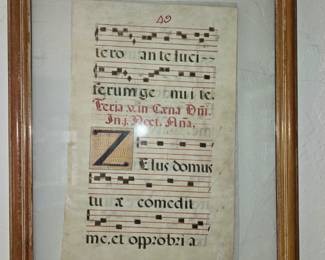 40
tero ante luci--
ferum genui te.
Feria v. in Cæna Dñi.
In j. Noct. Aña.
ZElus domus
tuæ comedit
me, et opprobria